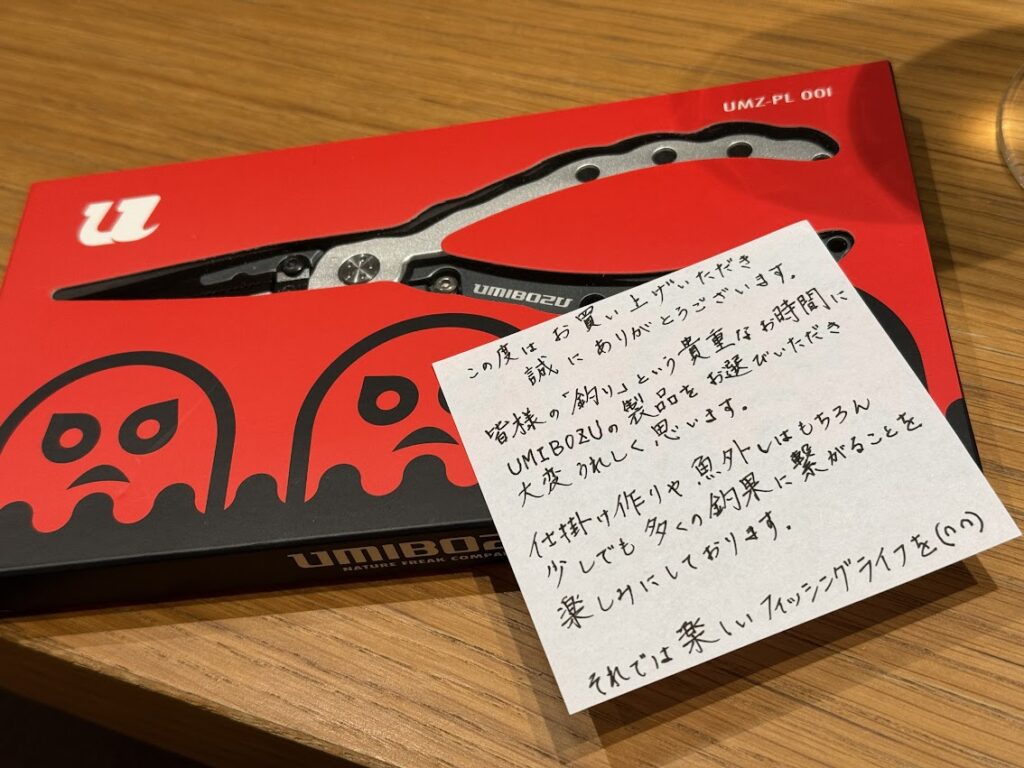 UMZ-PL 001
u
UMIBOZU
UMIBOZU
NATURE FREAK COMPA
この度はお買い上げいただき
誠にありがとうございます。
皆様の「釣り」という貴重なお時間に
UMIBOZUの製品をお選びいただき
大変うれしく思います。
仕掛け作りや魚外しはもちろん
少しでも多くの釣果に繋がることを
楽しみにしております。
それでは楽しいフィッシングライフを(∩∩)